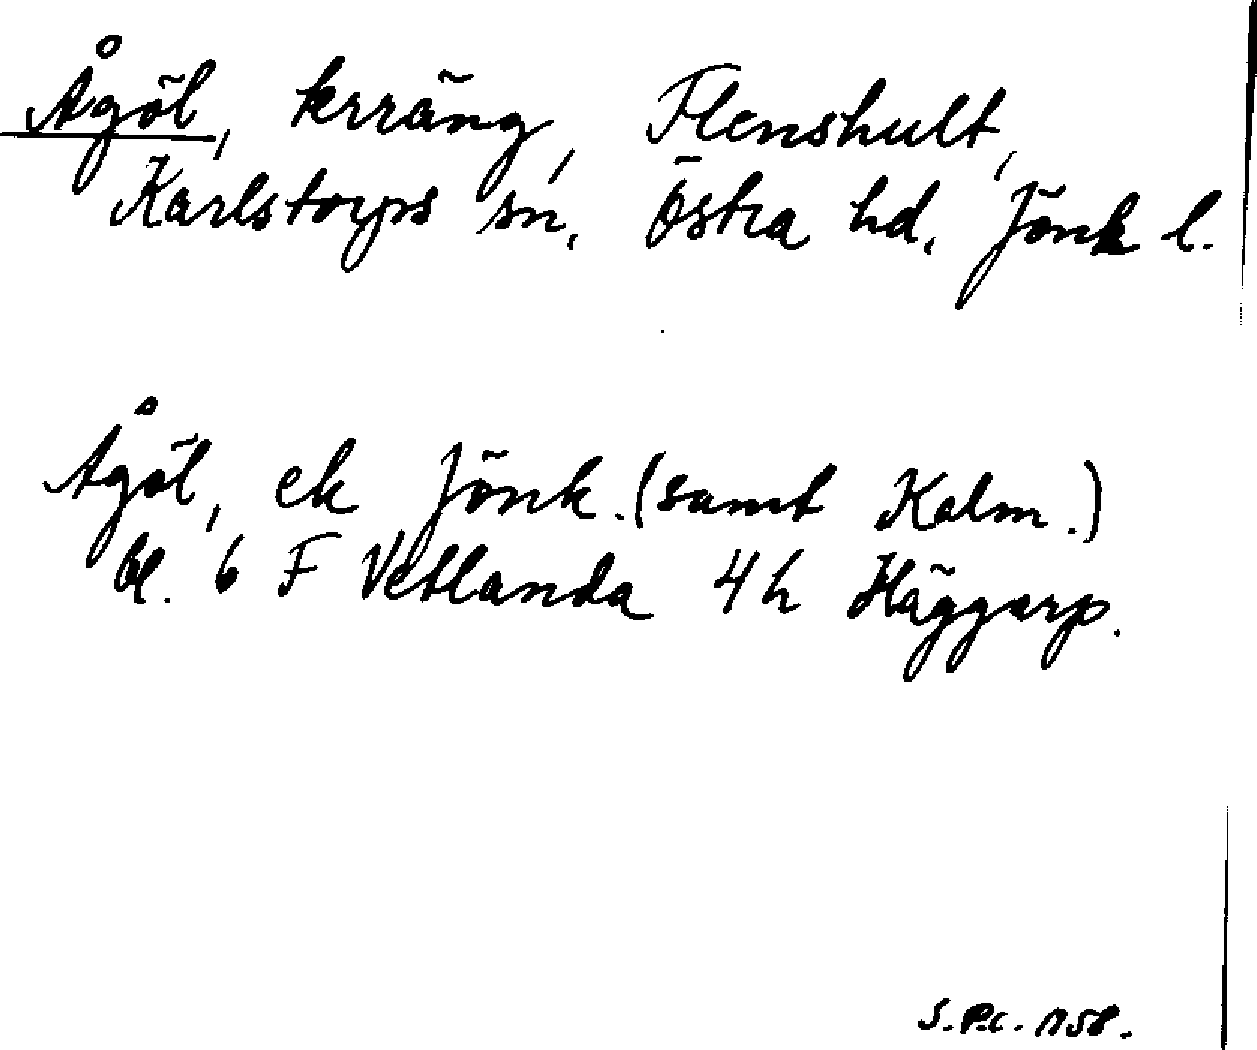 Ågöl, krräng, Flenshult,
Karlstorps sn, Östra hd, Jönk l.
Ågöl, ek Jönk. (samt Kalm.)
bl. 6 F Vetlanda 4h Häggarp.
S.P.C. 1958.